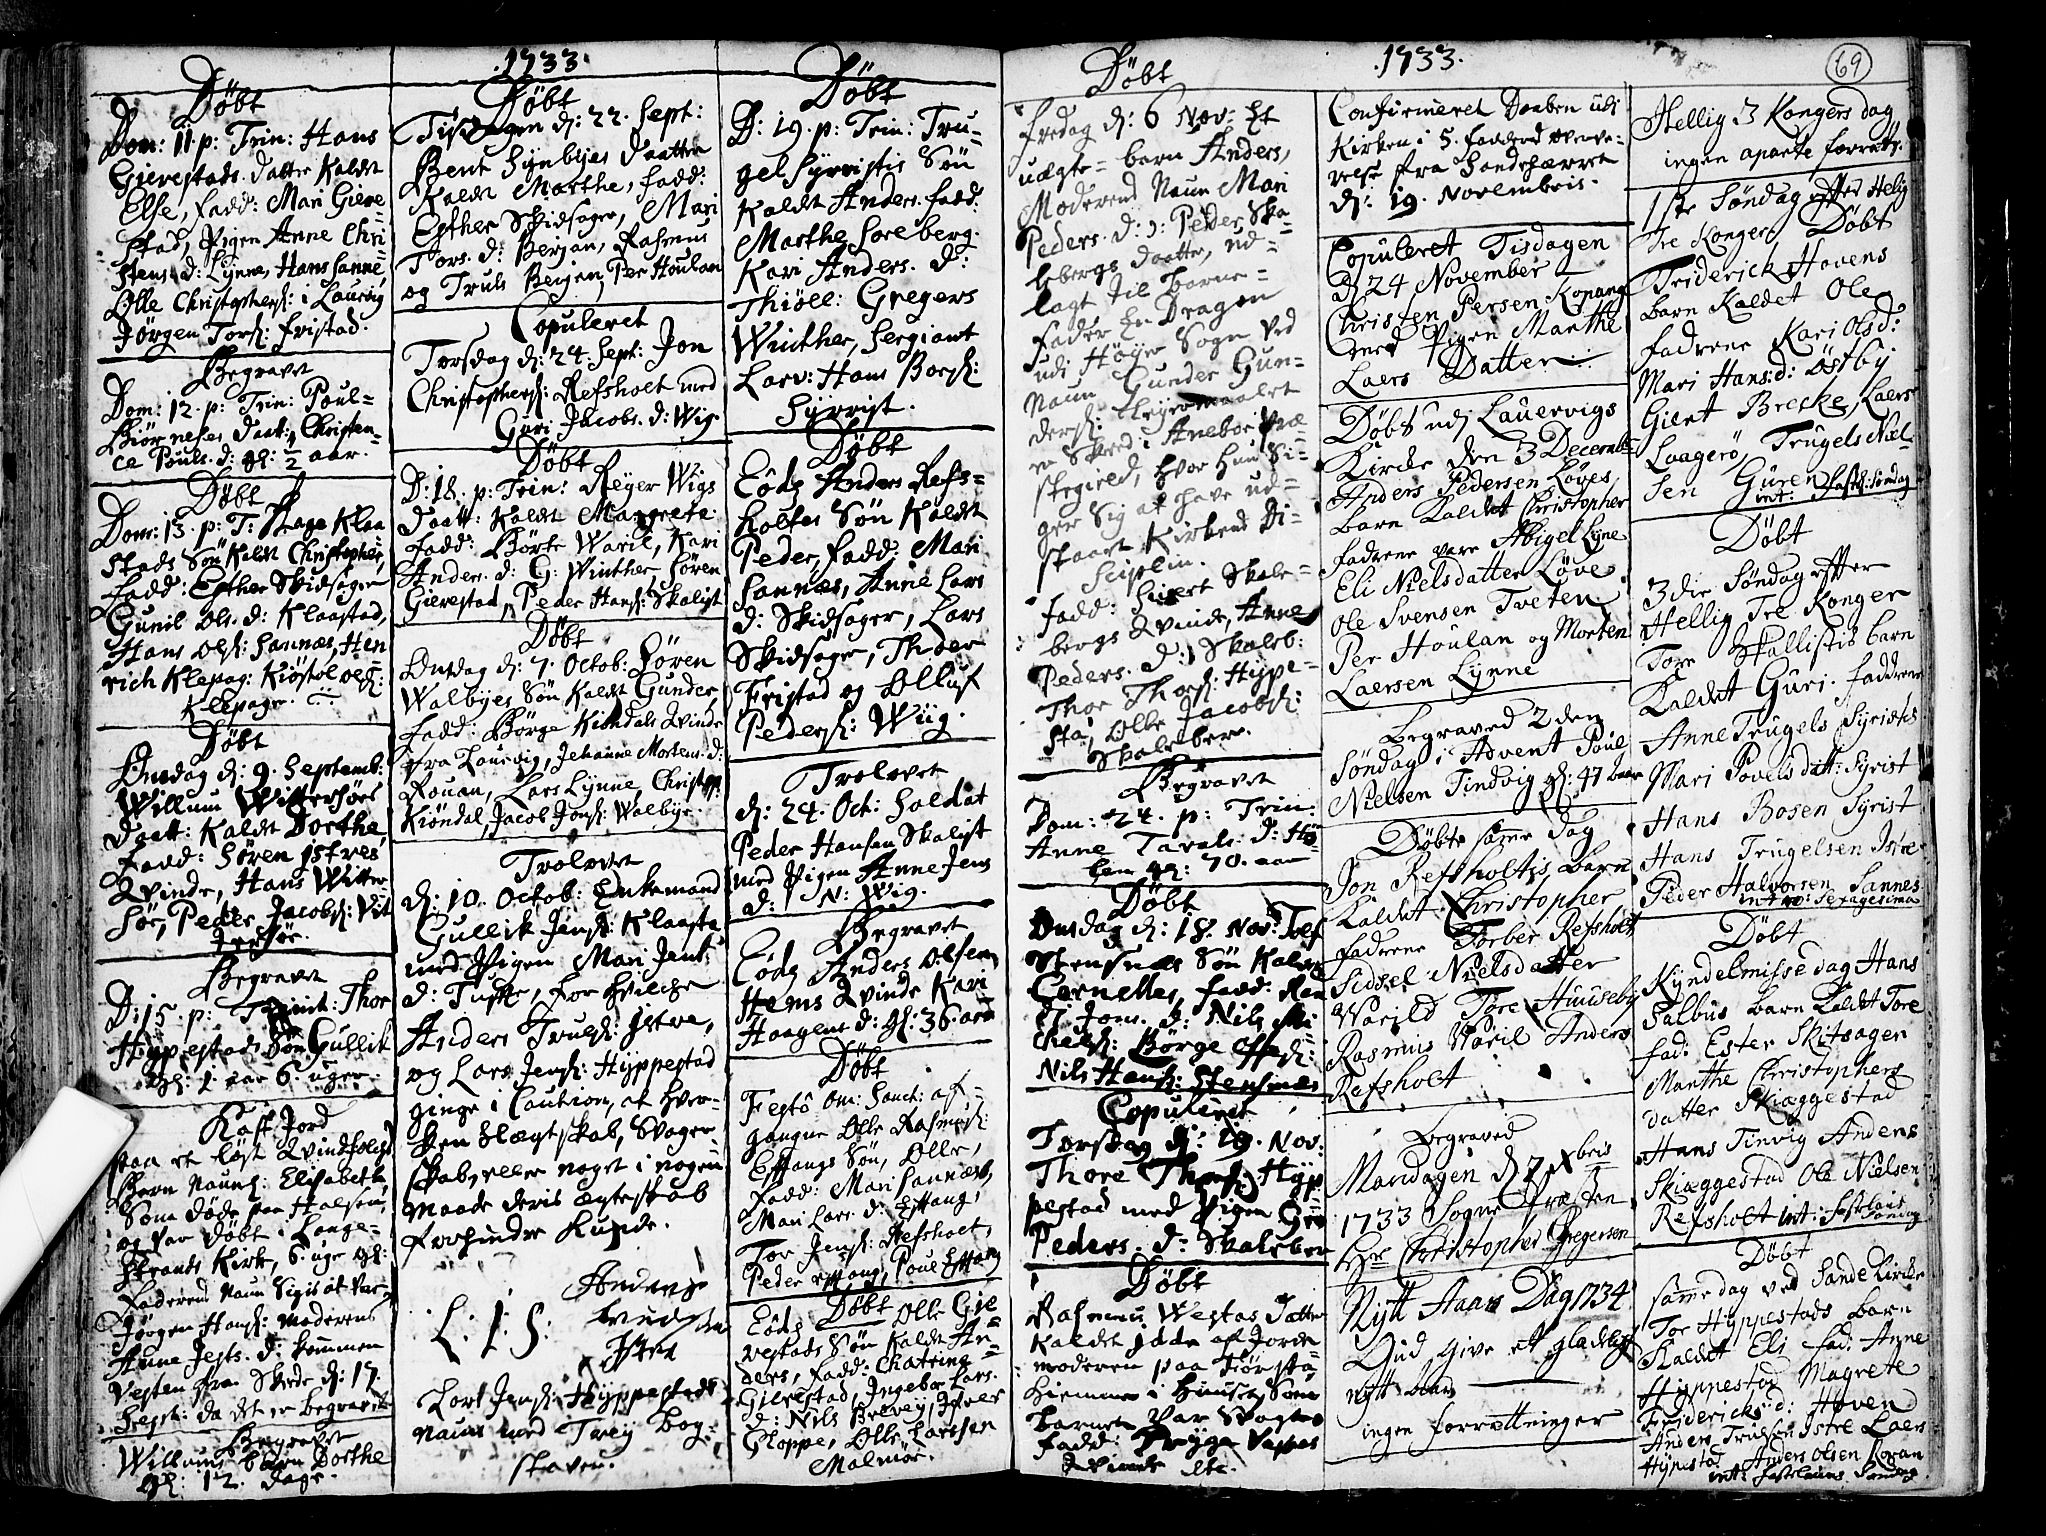 .1733.
Døbt
Dom: 11. p: Trin: Hans
Gierestads datter Kaldt
Else, fadd: Mari Giere-
stad, Pigen Anne Chri-
stens d: Lynne, Hans Sanne
Olle Christophers: i Laurvig
Jørgen Tors: fristad.
Begravet
Dom: 12. p: Trin: Poul
Biørneses daat: Christen-
ce Pouls. d: gl: ½ aar.
Døbt
Dom: 13. p: T: Klaa
stads Søn Kaldt Christopher,
fadd: Esther Skidsager
Gunil Ols. d: Klaastad,
Hans Ols: Sannæs, Hen
rich Klepag: Kiøstol Ols:
Klepage.
Døbt
Onsdag d: 9. Septemb:
Willum Wittersøes
daatt: Kaldt Dorthe,
fadd: Søren Istres
Qvinde, Hans Witter-
søe, Peder Jacobs: Vit
tersøe.
Begravet
D: 15. p: Trinit: Thor
Hyppestads Søn Gullik
gl: 1. aar 6. uger.
Kast Jord
paa et løst Qvindfolchs
Barn Naunl: Elisabeth
Som døde paa Halsen,
og var døbt i Lange-
strands Kirk, 6. uge gl:
faderens Naun Sigis at var
Jørgen Hans: moderens
Anne Jests. d: kommen
Vesten fra Skede d: 17.
Sept: da det er begravet
Begravet
Willums barn Dorthe
gl: 12. dage.
Døbt
Tisdagen d: 22. Sept:
Bent Synbyes daatter
Kaldt Marthe, fadd:
Esther Skidsager, Mari
Tors. d: Berjan, Rasmus
og Truls Berjen, Per Houlan
Copuleret
Torsdag d: 24. Sept: Jon
Christophers: Refsholt med
Guri Jacobs. d: Wig
Døbt
D: 18. p: Trin: Reyer Wigs
daatt: Kaldt Margrete
fadd: Børte Waril, Kari
Anders. d: G: Winther Søren
Gierestad, Peder Hans: Skaligt
Døbt
Onsdag d: 7. Octob: Søren
Walbyes Søn Kaldt Gunder
fadd: Børge Kiøndals Qvinde
fra Laurvig, Johanne Mortens. d:
Rouan, Lars Lynne, Christop:
Kiøndal, Jacob Jons: Walbye
Trolovet
d: 10. Octob: Enkemand
Gullik Jens: Klaasta
med Pigen Mari Jens.
d: Tuske, for hvilche
Anders Truls: Istre,
og Lars Jens: Hyppestad
ginge i Caution, at hver-
ken Slægtskab, Svoger-
skab, eller noget i nogen
maade deris ægteskab
forhindre Kunde.
L: I: S:
Anders
Istre
Lars Jens: Hyppestads
Naun med Trey Bog-
staver.
Døbt
D: 19. p: Trin: Tru-
gel Syrristis Søn
Kaldt Anders. fadd:
Marthe Soreberg.
Kari Anders. d:
Thiøll: Gregers
Winther, Sergiant
Larv: Hans Bors:
Syrrist.
Døbt
Eod: Anders Refs-
holtes Søn Kaldt
Peder, fadd: Mari
Sannæs, Anne Lars
d: Skidsager, Lars
Skidsager, Theder
Fristad og Olluf
Peders: Wiig.
Trolovet
d: 24. Oct: Soldat
Peder Hansen Skaligt
med Pigen Anne Jens
d: N: Wig.
Begravet
Eod: Anders Olsen
Hems Qvinde Kari
Haagens d: gl: 36 aar
Døbt
Festo Om: Sanct: af-
gangne Olle Rasmus:
Eftangs Søn, Olle,
fadd: Mari Sannæs,
Mari Lars. d: Eftang,
Tor Jens: Refsholt,
Peder Eftang, Poul Eftang
Døbt
Eod: Olle Gie
restads Søn Kaldt An-
ders, fadd: Chatrine
Gierestad, Ingebor Lars.
d: Nils Brevey, Iver
Gloppe, Olle Larsen
Malmøe.
.1733.
69
Døbt
Fredag d: 6 Nov: Et
uægte barn Anders,
Moderens Naun Mari
Peders. d: Peder Ska-
lebergs daatter, ud-
lagt til barne-
fader En Dragon
udi Høyer Sogn ved
Naun Gunder Gun-
ders: Leyermaalet
er Skeed i Anebøe Præ
stegield, hvor hun Si-
ger Sig at have ud-
staaet Kirkens Di-
sciplin.
fadd: Sivert Skale-
bergs Qvinde, Anne
Peders. d: Skaleb:
Thor Thors: Hyppe-
sta, Olle Jacobs:
Skaleberg.
Begravet
Dom: 24. p: Trin:
Anne Tarals. d: Hø
ben gl: 70. aar
Døbt
Onsdag d: 18. Nov: Tolf
Stensnæs Søn Kaldt
Cornelles, fadd: Ka
Jons. d: Nils Mi
chels: Børge Offs:
Nils Hans: Stensnæs
Copuleret
Torsdag d: 19. Nov:
Thore Thors: Hyp
pestad med Pigen Gro
Peders. d: Skaleber
Døbt
Rasmus Westas datter
Kaldet Jdde af Jorde-
moderen paa Tiørsta
hiemme i huuset, Som
barnet Var Svagt
fadd: Trygs Vestas
Qvinde etc.
Confirmeret Daaben udi
Kirken i 5. fadderes
velse fra Sandeherret
d: 19. Novembris.
Copuleret Tisdagen
d 24 November
Christen Persen Kopang
med Pigen Marthe
Laers Datter.
Døbt udj Lauervigs
Kircke den 3 Decemb:
Anders Pedersen Løves
barn Kaldet Christopher
fadrene vare Abigel Lyne
Eli Nielsdatter Løve
Ole Svensen Tveten
Per Houlan og Morten
Laersen Lynne
Begraved 2 den
Søndag i Advent Poul
Nielsen Tindvig gl: 47 aar
Døbte same dag
Jon Refsholtis barn
Kaldet Christopher
fadrene Torber Refsholt
Sidsel Nielsdatter
Warild Tore Huuseby
Rasmus Waril Anders
Refsholt
Begraved
Mandagen d 7 Xbris
1733 Sogne Præsten
Hr Christopher Gregersen
Nytt Aars Dag 1734
Gud give et gledeligt
nytt aar
ingen forretninger
Hellig 3 Kongers dag
ingen aparte forretn:
1ste Søndag effter Helig
Tre Konger Døbt
Friderick Hovens
barn Kaldet Ole
fadrene Kari Olsd:
Mari Hans:d: Østby
Giert Brecke, Laers
Laagerø, Trugels Niel-
sen Guren
int: fastel: Søndag
Døbt
3die Søndag effter
Hellig Tre Konger
Tore Skallistis barn
Kaldet Guri. faddrene
Anne Trugels Syristis
Mari Povels datt: Syrist
Hans Bosen Syrist
Hans Trugelsen Istre
Peder Halvorsen Sannes
intro: Sexagesima
Døbt
Kyndelmisse dag Hans
Salbus barn Kaldet Tore
fad: Ester Skitsager
Marthe Christophers
datter Skiæggestad
Hans Tinvig Anders
Skiæggestad Ole Nielsen
Refsholt int: fastelaus
Søndag
Døbt
samedag ved Sande Kircke
Tor Hyppestads barn
Kaldet Eli fad: Anne
Hyppestad Magrete
Fridericks d: Hoven
Anders Trulsen Istre Laers
Hypestad Anders Olsen Rovan
int: fastelauns Søndag